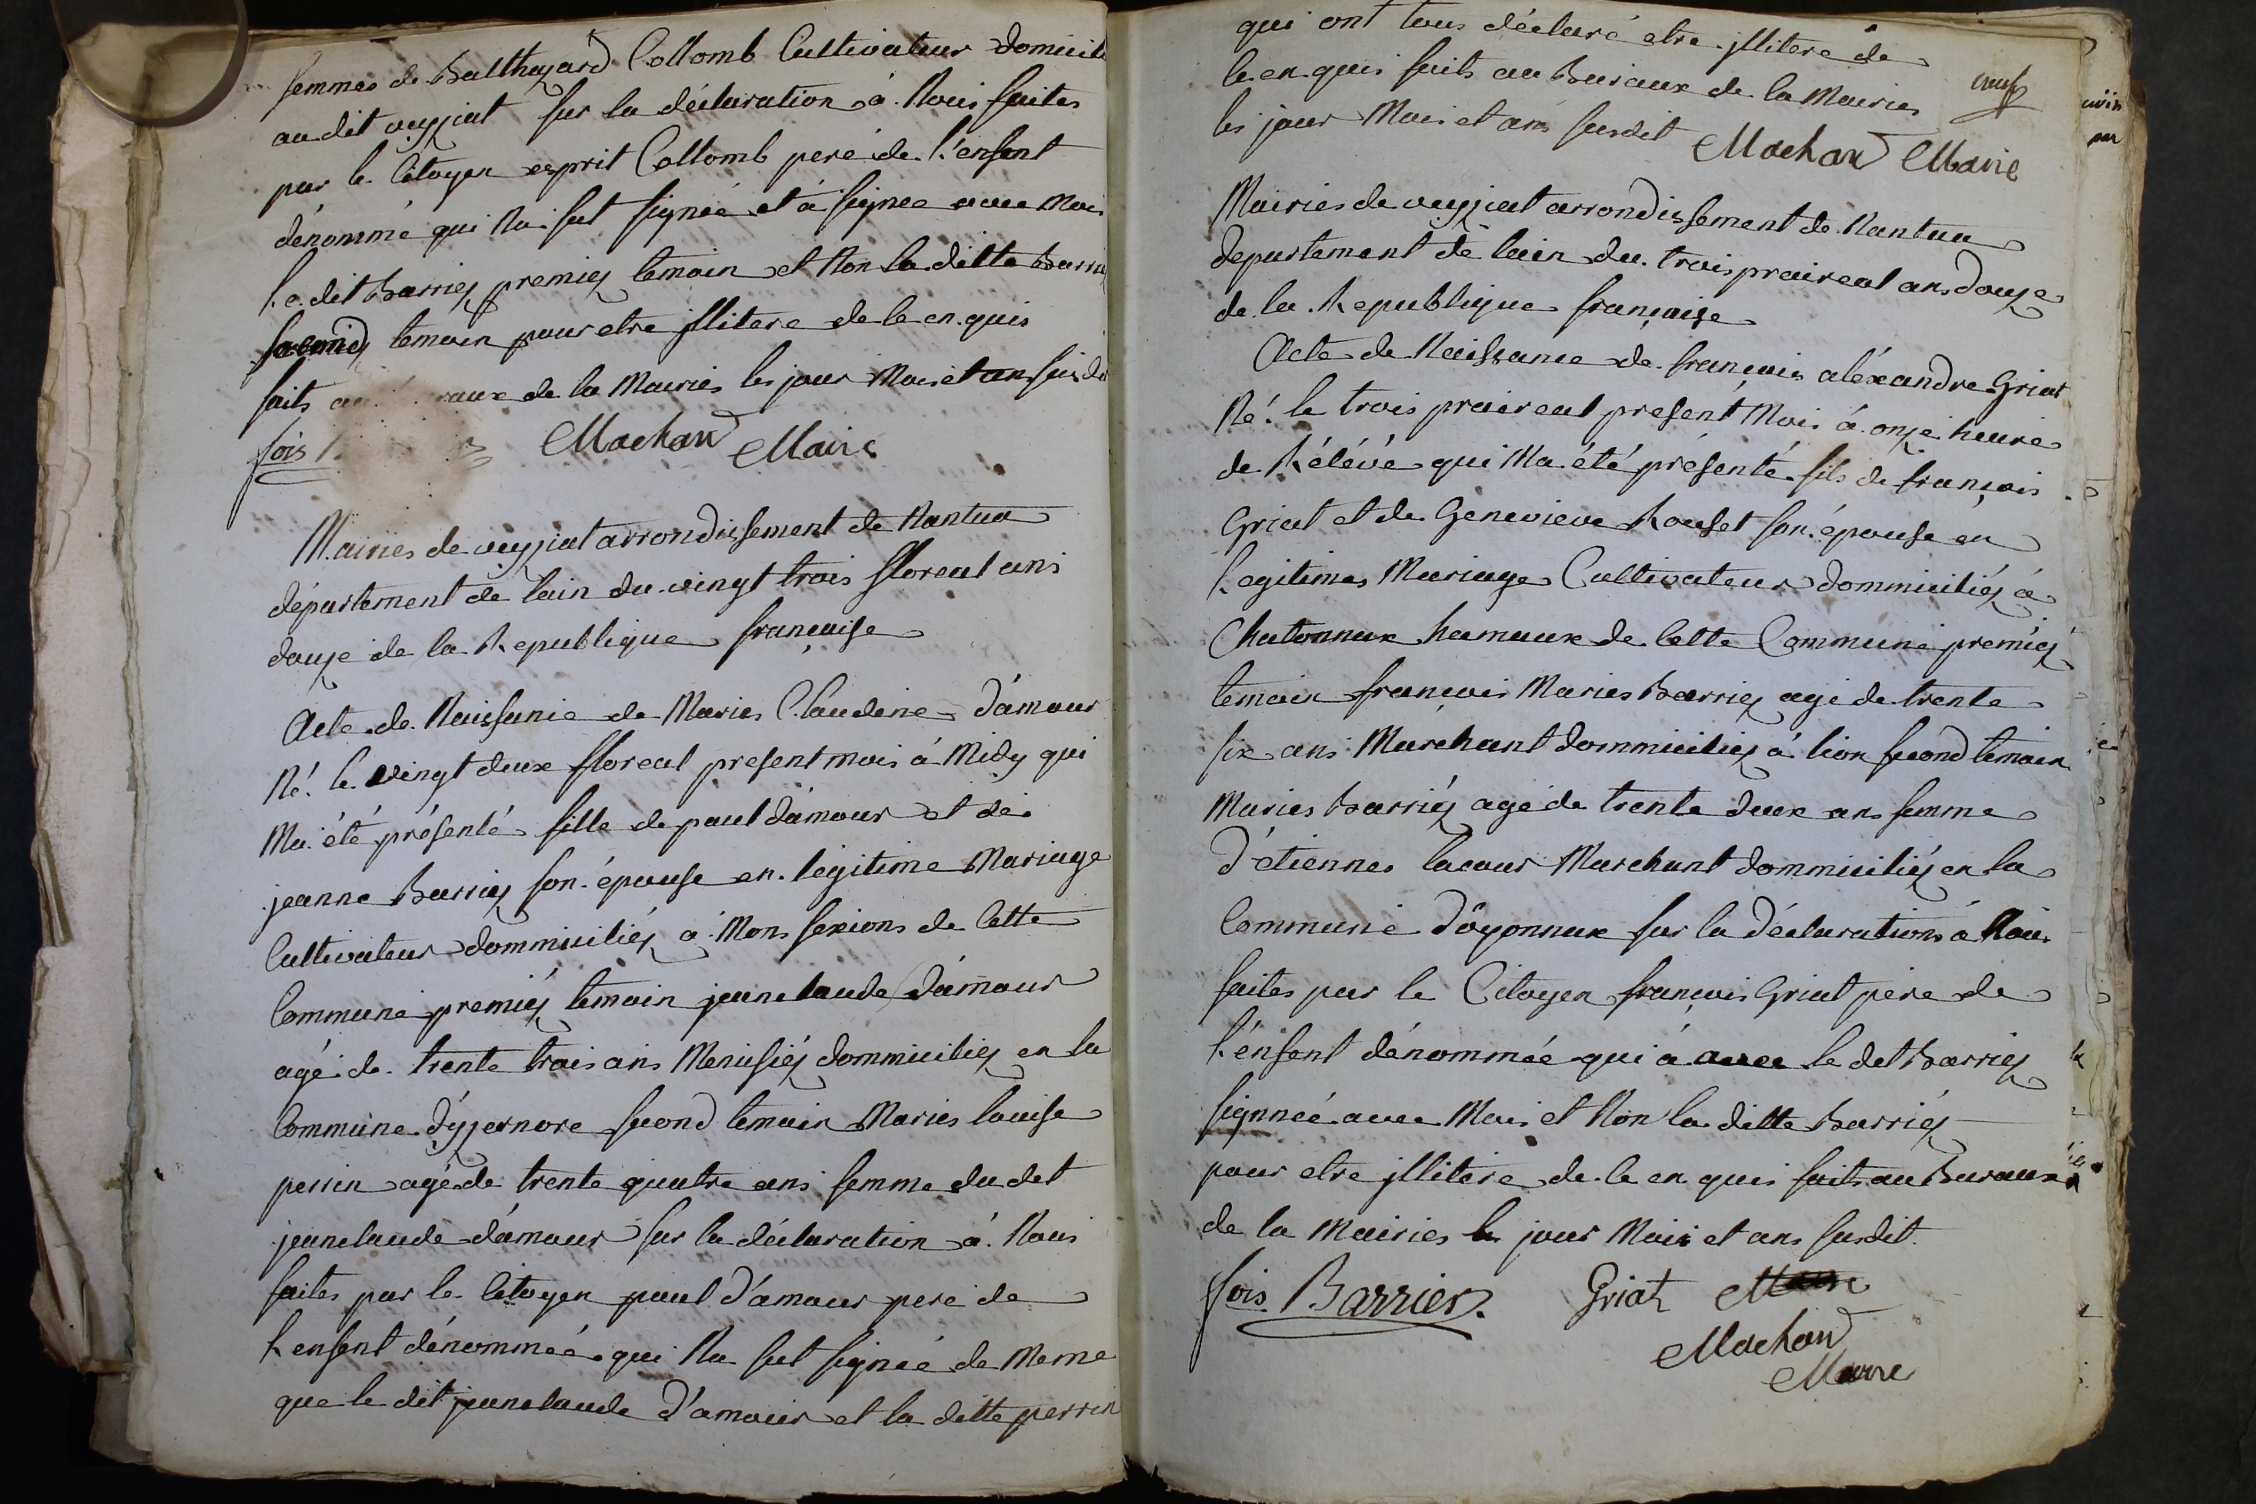 femmes de Balthazard Collomb Cultivateur domicile
au dit veyziat sur la déclaration à Nous faites
par le Citoyen esprit Collomb pere de l'enfent
dénommé qui Na sut signée et à signee avec Moi
le dit Barriez premiez temoin et Non la ditte
second temoin pour etre jllitere de le en quis
faits de la Mairies les jour Mois et an susdit
fois Machard Maire
Mairies de veyziat arrondissement de Nantua
département de lain du vingt trois floreal ans
douze de la Republique française
Acte de Naissance de Maries Claudine d'amour
Né le vingt deux floreal present mois à Midy qui
Ma été présenté fille de paul d'amour et de
jeanne Barriez son épouse en légitime Mariage
Cultivateur dommiciliéz à Mons sexions de Cette
Commune premiéz temoin jeanclaude d'amour
agé de trente trois ans Menusiéz dommiciliéz en la
Commune d'yzernore second temoin Maries louise
perrin agé de trente quatre ans femme du det
jeanclaude d'amour sur la déclaration à Nous
faites par le Citoyen paul d'amour pere de
l'enfent dénommeé qui Na sut signeé de Meme
que le dit jeanclaude d'amour et la ditte perrin
qui ont tous déclaré etre jllitere de
le en quis faits au Buraux de la Mairies
les jour Mois et ans susdit Machard Maire
Mairies de veyziat arrondissement de Nantua
departement de lain du trois praireal ans douze
de la Republique française
Acte de Naissance de françois aléxandre Griat
Né le trois praireal present Mois à onze heure
de Rélévé qui Ma été présenté fils de françois
Griat et de Genevieve Rouset son épouse en
Legitimes Mariage Cultivateur dommiciliéz à
Chatonnax hamaux de Cette Commune premiéz
temoin françois Maries Barriez agé de trente
six ans Marchant dommiciliez à lion second temoin
Maries Barriéz agé de trente deux ans femme
d'étiennes lacour Marchant dommiciliéz en la
Commune d'oyonnax sur la déclarations à Nous
faites par le Citoyen françois Griat pere de
l'énfent dénommeé qui à avec le det Barriez
signneé avec Moi et Non la ditte Barriéz
pour etre jllitére de le en quis faits au Buraux
de la Mairies les jour Mois et ans susdit
fois Barrier. Griat
Machard
Maire